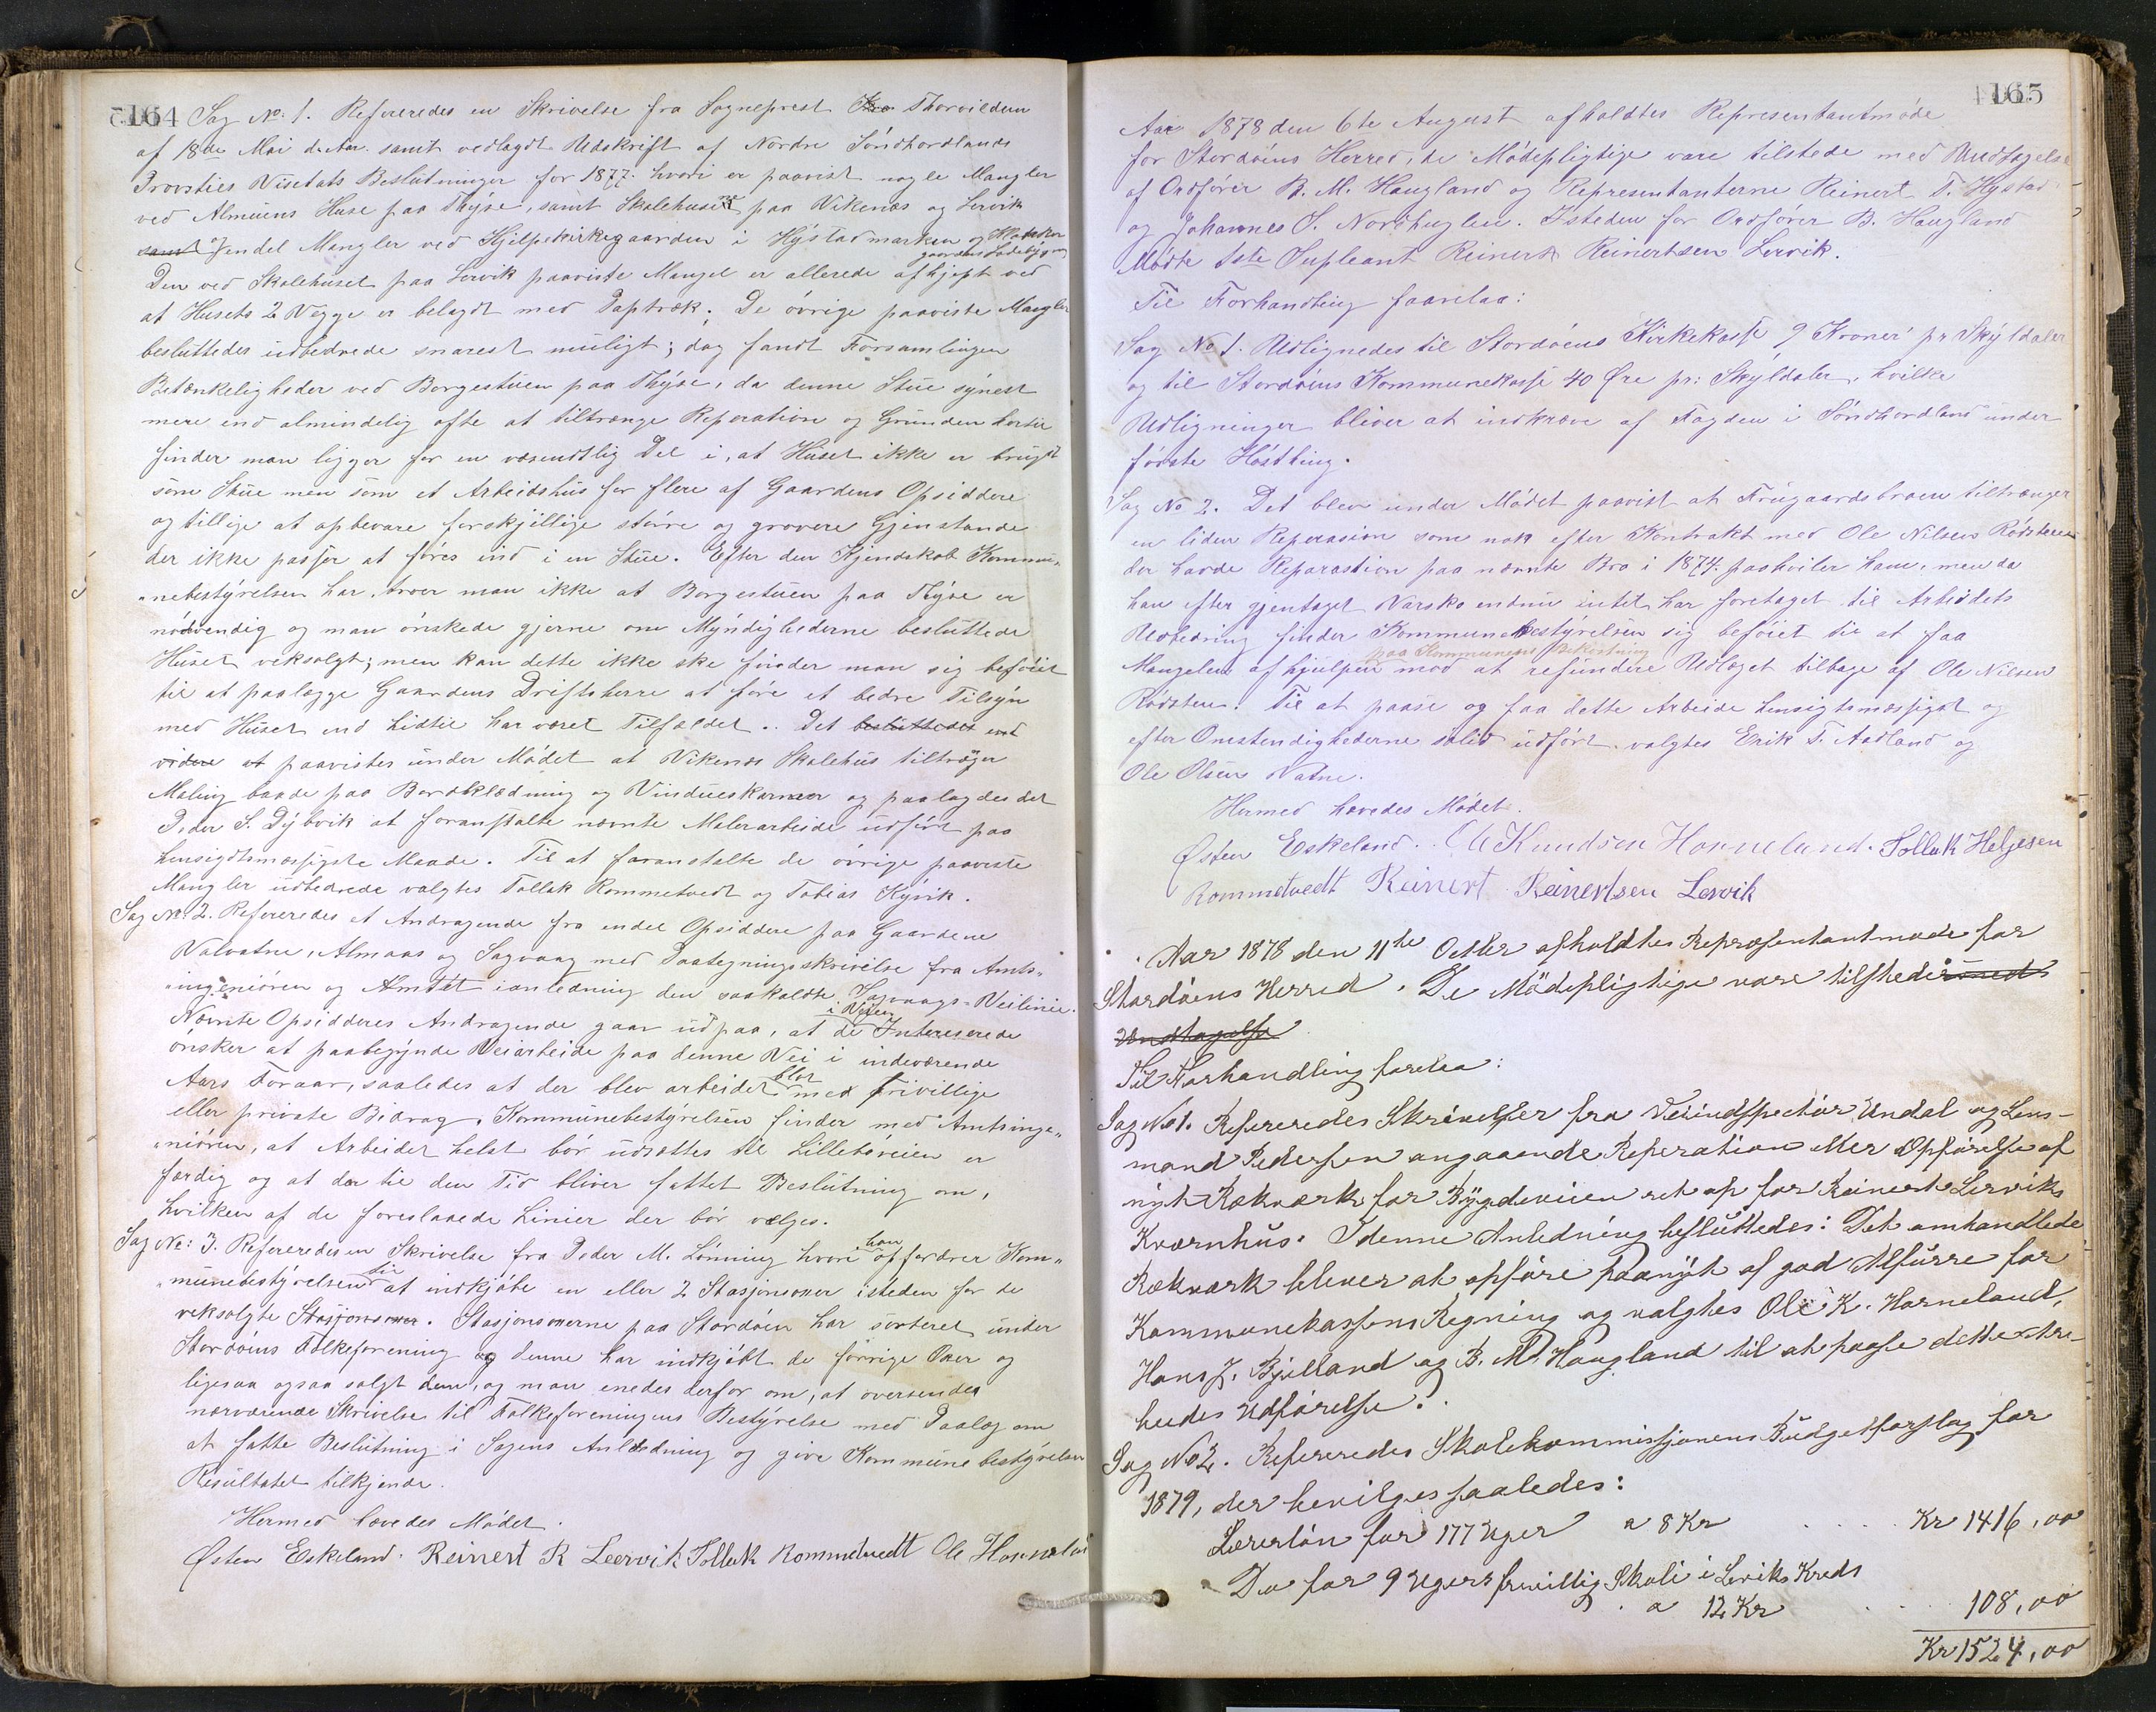 164
Sag No: 1. Refereredes en Skrivelse fra Sogneprest Thorvildsen
af 18de Mai d. Aar. samt vedlagdt Udskrift af Nordre Söndhordlands
Provsties Visetats Beslutninger for 1877. hvori er paavist nogle Mangler
ved Almuens Huse paa Thyse, samt Skolehusene paa Vikenes og Lervik
samt og endel Mangler ved Hjelpekirkegaarden i Hystadmarken og
Den ved Skolehuset paa Lervik paaviste Mangel er allerede afhjept ved
at Husets 2 Vegge er belagdt med Paptræk. De övrige paaviste Mangler
besluttedes udbedrede snarest muligt; dog fandt Forsamlingen
Betænkeligheder ved Borgestuen paa Thyse, da denne Stue synest
mere end almindelig ofte at tiltrænge Reperation og Grunden hertil
finder man ligger for en væsendtlig Del i, at Huset ikke er brugt
som Stue men som et Arbeidshus for flere af Gaardens Opsiddere
og tillige at opbevare forskjillige större og grovere Gjenstande
der ikke passer at föres ind i en Stue. Efter den Kjendskab Kommu„
„nebestyrelsen har, troer man ikke at Borgestuen paa Thyse er
nödvendig og man önskede gjerne om Myndighederne besluttede
Huset veksolgt; men kan dette ikke ske finder man sig beföiet
til at paalægge Gaardens Driftsherre at före et bedre Tilsyn
med Huset end hidtil har været Tilfældet. Det besluttedes end
videre at paavistes under Mödet at Vikenes Skolehus tiltrænger
Maling baade paa Bordklædning og Vindueskarmer og paalagdes det
Peder S. Dybvik at foranstalte nævnte Malerarbeide udfört paa
hensigdtsmæssigste Maade. Til at foranstalte de övrige paaviste
Mangler udbedrede valgtes Tollak Rommetvedt og Tobias Kyvik.
Sag No: 2. Refereredes et Andragende fra endel Opsiddere paa Gaardene
Valvatne, Almaas og Sagvaag med Paategningsskrivelse fra Amts„
„ingeniören og Amtet ianledning den saakaldte Sagvaags-Veilinie.
Nævnte Opsidderes Andragende gaar ud paa, at de i Veien Intereserede
önsker at paabegynde Veiarbeide paa denne Vei i indeværende
Aars Foraar, saaledes at der blev arbeidet blot med frivillige
eller private Bidrag. Kommunebestyrelsen finder med Amtsinge„
„niören, at Arbeidet helst bör udsættes til Lilleböveien er
færdig og at der til den Tid bliver fattet Beslutning om,
hvilken af de foreslaaede Linier der bör vælges.
Sag No: 3. Refereredes en Skrivelse fra Peder M. Lönning hvori han opfordrer Kom„
„munebestyrelsen til at indkjöbe en eller 2 Stasjonsoxer isteden for de
veksolgte Stasjonsoxer. Stasjonsoxerne paa Stordöen har sorteret under
Stordöens Folkeforening og denne har indkjöbt de forrige Oxer og
ligesaa ogsaa solgt dem, og man enedes derfor om, at oversendes
nærværende Skrivelse til Folkeforeningens Bestyrelse med Paalæg om
at fatte Beslutning i Sagens Anledning og give Kommunebestyrelsen
Resultatet tilkjende.
Hermed hævedes Mödet.
Østen Eskeland. Reinert R Leervik Tollak Rommetvedt Ole Horneland
165
Aar 1878 den 6te August afholdtes Representantmöde
for Stordöens Herred, de Mödepligtige vare tilstede med Undtagelse
af Ordförer B. M. Haugland og Representanterne Reinert T. Hystad
og Johannes S. Nordhuglen. Isteden for Ordförer B. Haugland
Mödte 1ste Supleant Reinert Reinertsen Lervik.
Til Forhandling foorelaa:
Sag No 1. Udlignedes til Stordöens Kirkekasse 9 Kroner pr Skyldaler
og til Stordöens Kommunekasse 40 Øre pr: Skyldaler, hvilke
Udligninger bliver at indkræve af Fogden i Söndhordland under
förste Hösthing.
Sag No 2. Det blev under Mödet paavist at Frugaardsbroen tiltrænger
en liden Reperasion som nok efter Kontrakt med Ole Nilsen Rödsteen
der havde Reparastion paa nævnte Bro i 1874. paahviler ham, men da
han efter gjentaget Varsko endnu intet har foretaget til Arbeidets
Udbedring finder Kommunebestyrelsen sig beföiet til at faa
Mangelen afhjulpen paa Kommunens Bekostning mod at refundere Udlæget tilbage af Ole Nilsen
Rödsten. Til at paase og faa dette Arbeide hensigtsmæssigst og
efter Omstendighederne solid udfört. valgtes Erik T. Aadland og
Ole Olsen Vatne.
Hermed hævedes Mödet.
Østen Eskeland. Ole Knudsen Horneland. Tollak Helgesen
Rommetvedt Reinert Reinertsen Lervik
Aar 1878 den 11te Octbr afholdtes Repræsentantmöde for
Stordöens Herred. De Mödepligtige vare tilstede med
Undtagelse
Til Forhandling forelaa:
Sag No 1. Refereredes Skrivelser fra Veiindspectör Undal og Lens-
mand Pedersen angaaende Reperation eller Opförelse af
nyt Rækværk for Bygdeveien ret op for Reinert Lerviks
Kværnhus. I denne Anledning besluttedes: Det omhandlede
Rækværk bliver at opföre paanyt af god Alfurre for
Kommunekassens Regning og valgtes Ole K. Horneland,
Hans J. Bjelland og B. M. Haugland til at paase dette Ar-
beides Udförelse.
Sag No 2. Refereredes Skolekommissjonens Budgetforslag for
1879, der bevilges saaledes:
Lærerlön for 177 Uger a 8 Kr . . . . Kr 1416,00
Do for 9 Ugers frivillig Skole i Lerviks Kreds
a 12 Kr . . . 108,00
Kr 1524,00